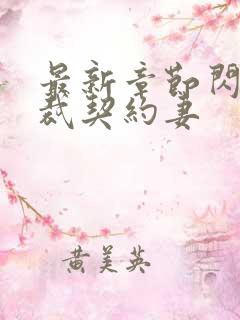 最新章節閃
裁契約妻
黄美英